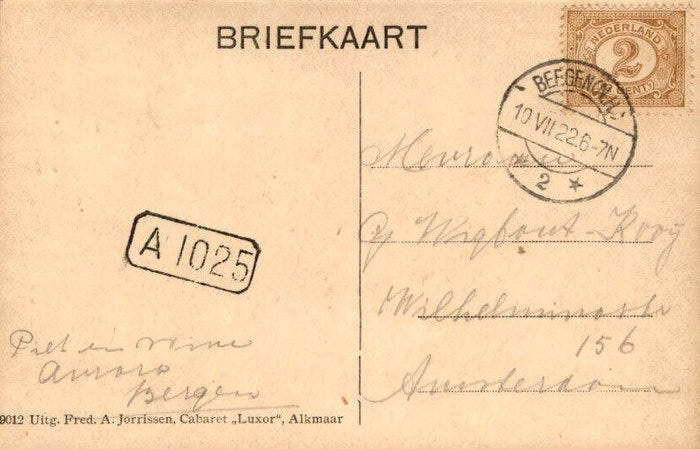 BRIEFKAART
NEDERLAND
2
CENT
BERGEN (N.H.)
10 VII 22.6-7N
2
A 1025
Mevrouw
Wigbout-Kooy
Wilhelminastr
156
Amsterdam
Piet en
Aurora
Bergen
9012 Uitg. Fred. A. Jorrissen, Cabaret „Luxor“, Alkmaar